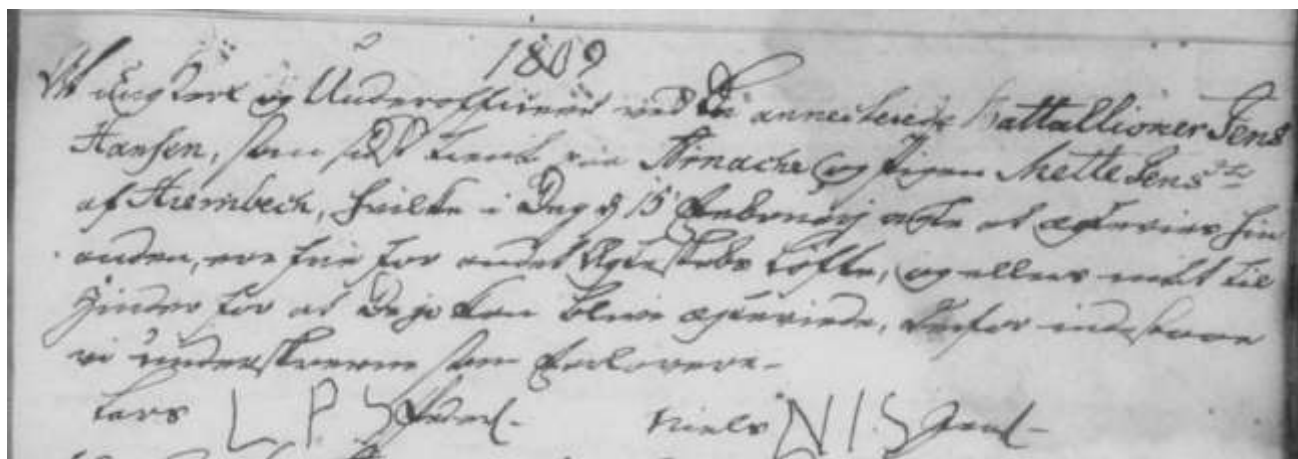 1809
At ung Karl og Underofficeer ved de annecterede Battallioner Jens
Hansen, som sidst tient i Arnache og Pigen Mette Jens
af Humbech, hvilke i Dag d 15 Februarj agte at ægtevies hin
anden, ere frie for andet Ægteskabs Løfte, og ellers intet til
Hinder for at De jo kan blive ægteviede, derfor indestaae
vi underskrevne som Forlovere.
Lars L P S Peders. Niels N I S Jens.